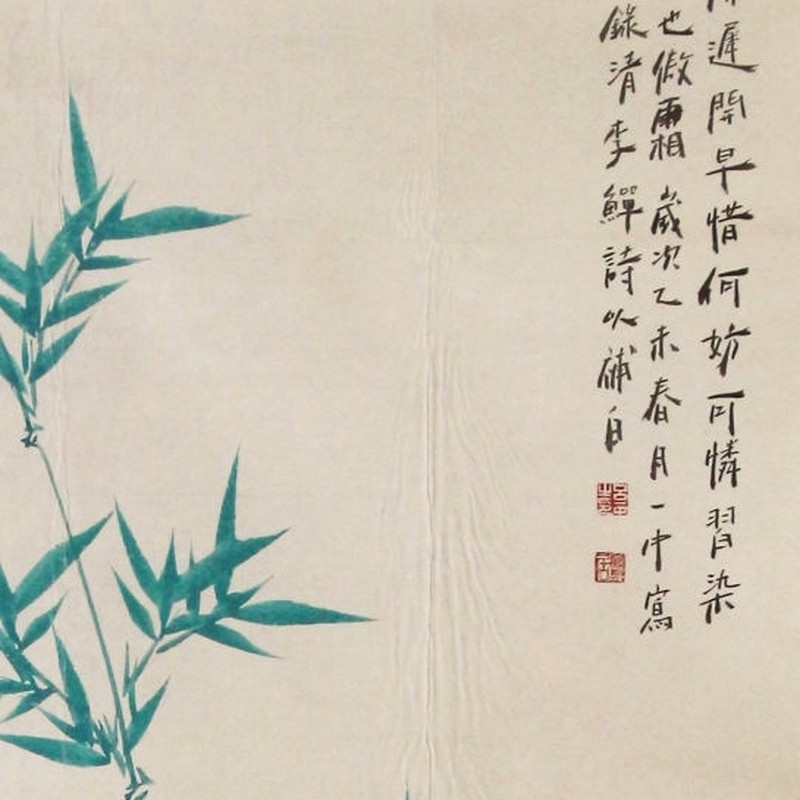 遲開早惜何妨可憐習染
也傲霜 歲次乙未春月一中寫
錄清李鱓詩以補白